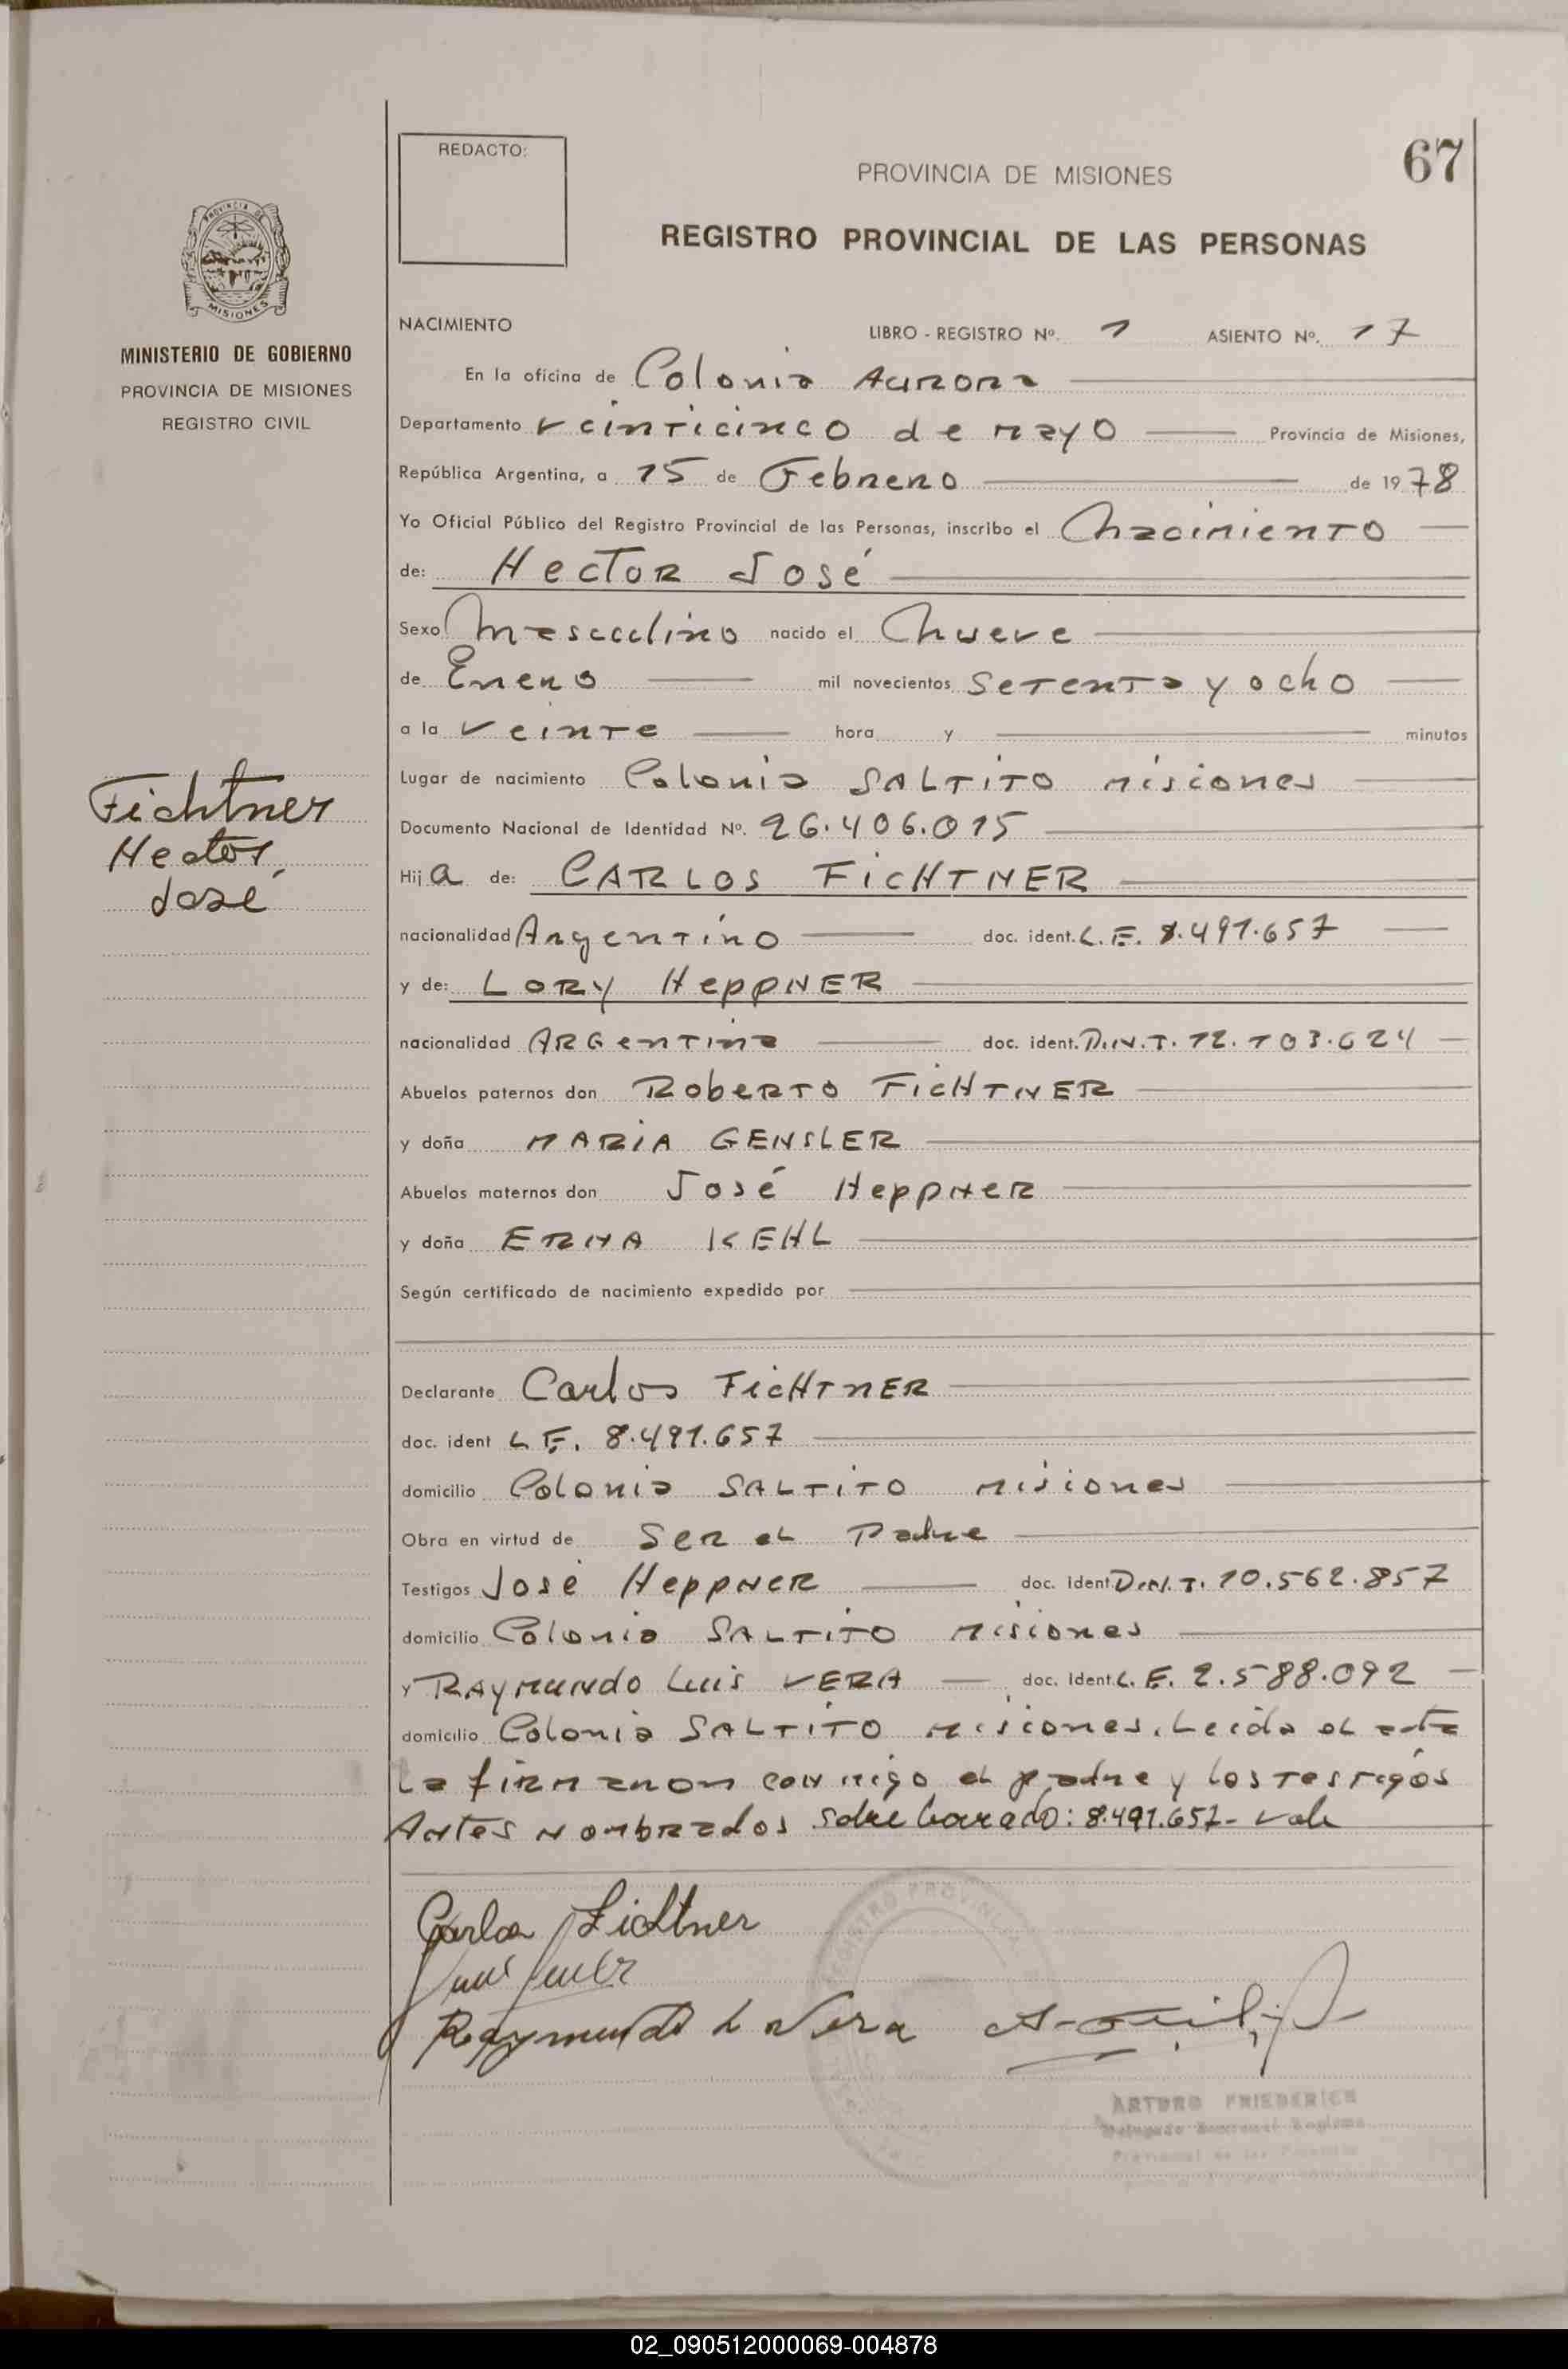 REDACTO:
67
PROVINCIA DE MISIONES
REGISTRO PROVINCIAL DE LAS PERSONAS
PROVINCIA DE
MISIONES
MINISTERIO DE GOBIERNO
PROVINCIA DE MISIONES
REGISTRO CIVIL
NACIMIENTO LIBRO - REGISTRO Nº. 1 ASIENTO Nº. 17
En la oficina de Colonia Aurora
Departamento veinticinco de mayo Provincia de Misiones,
República Argentina, a 15 de Febrero de 1978
Yo Oficial Público del Registro Provincial de las Personas, inscribo el Nacimiento
de: Hector José
Sexo Masculino nacido el Nueve
de Enero mil novecientos setenta y ocho
a la veinte hora y minutos
Lugar de nacimiento Colonia SALTITO Misiones
Documento Nacional de Identidad Nº. 26.406.015
Hija de: CARLOS FiCHTNER
nacionalidad Argentino doc. ident. L.E. 8.491.657
y de: LORY HeppNER
nacionalidad ARGentina doc. ident. D.N.I. 12.103.624
Abuelos paternos don RobeRTO FiCHTNER
y doña MARiA GENSLER
Abuelos maternos don José HeppNeR
y doña ERNA KEHL
Según certificado de nacimiento expedido por
Fichtner
Hector,
José
Declarante Carlos FicHTnER
doc. ident L.E. 8.491.657
domicilio Colonia SALTiTO Misiones
Obra en virtud de Ser el Padre
Testigos José HeppNeR doc. Ident D.N.I. 10.562.857
domicilio Colonia SALTiTO Misiones
y RAYMUNDO Luis VERA doc. Ident L.E. 2.588.092
domicilio Colonia SALTiTO Misiones. Leida el acta
La firmaron conmigo el padre y los testigos
Antes Nombrados sobre borrado: 8.491.657- Vale
Carlos Fichtner
Raymundo L Vera
REGISTRO PROVINCIAL
ARTURO FRIEDERICH
02_090512000069-004878